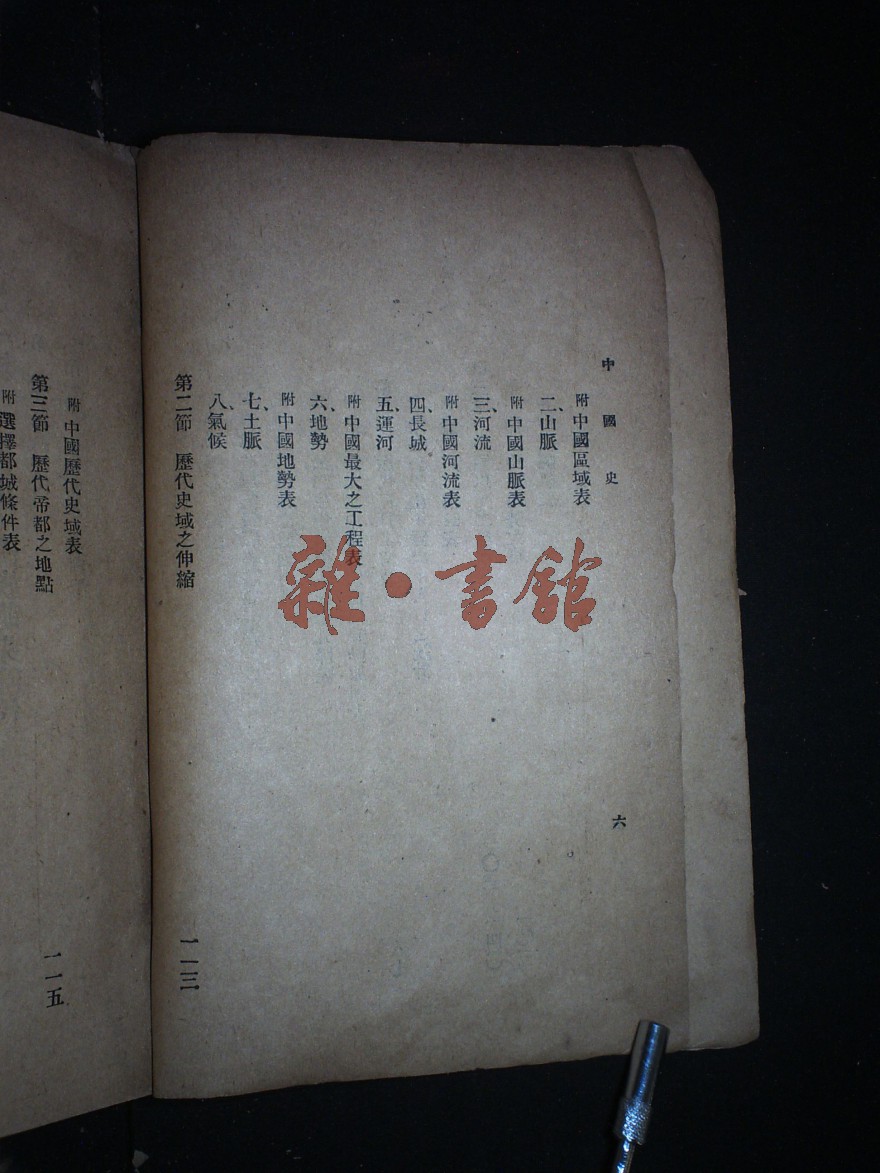 中國史
六
附中國區域表
二、山脈
附中國山脈表
三、河流
附中國河流表
四、長城
五、運河
附中國最大之工程表
六、地勢
附中國地勢表
七、土脈
八、氣候
第二節 歷代史域之伸縮 一一三
附中國歷代史域表
第三節 歷代帝都之地點 一一五
附選擇都城條件表
雜·書館